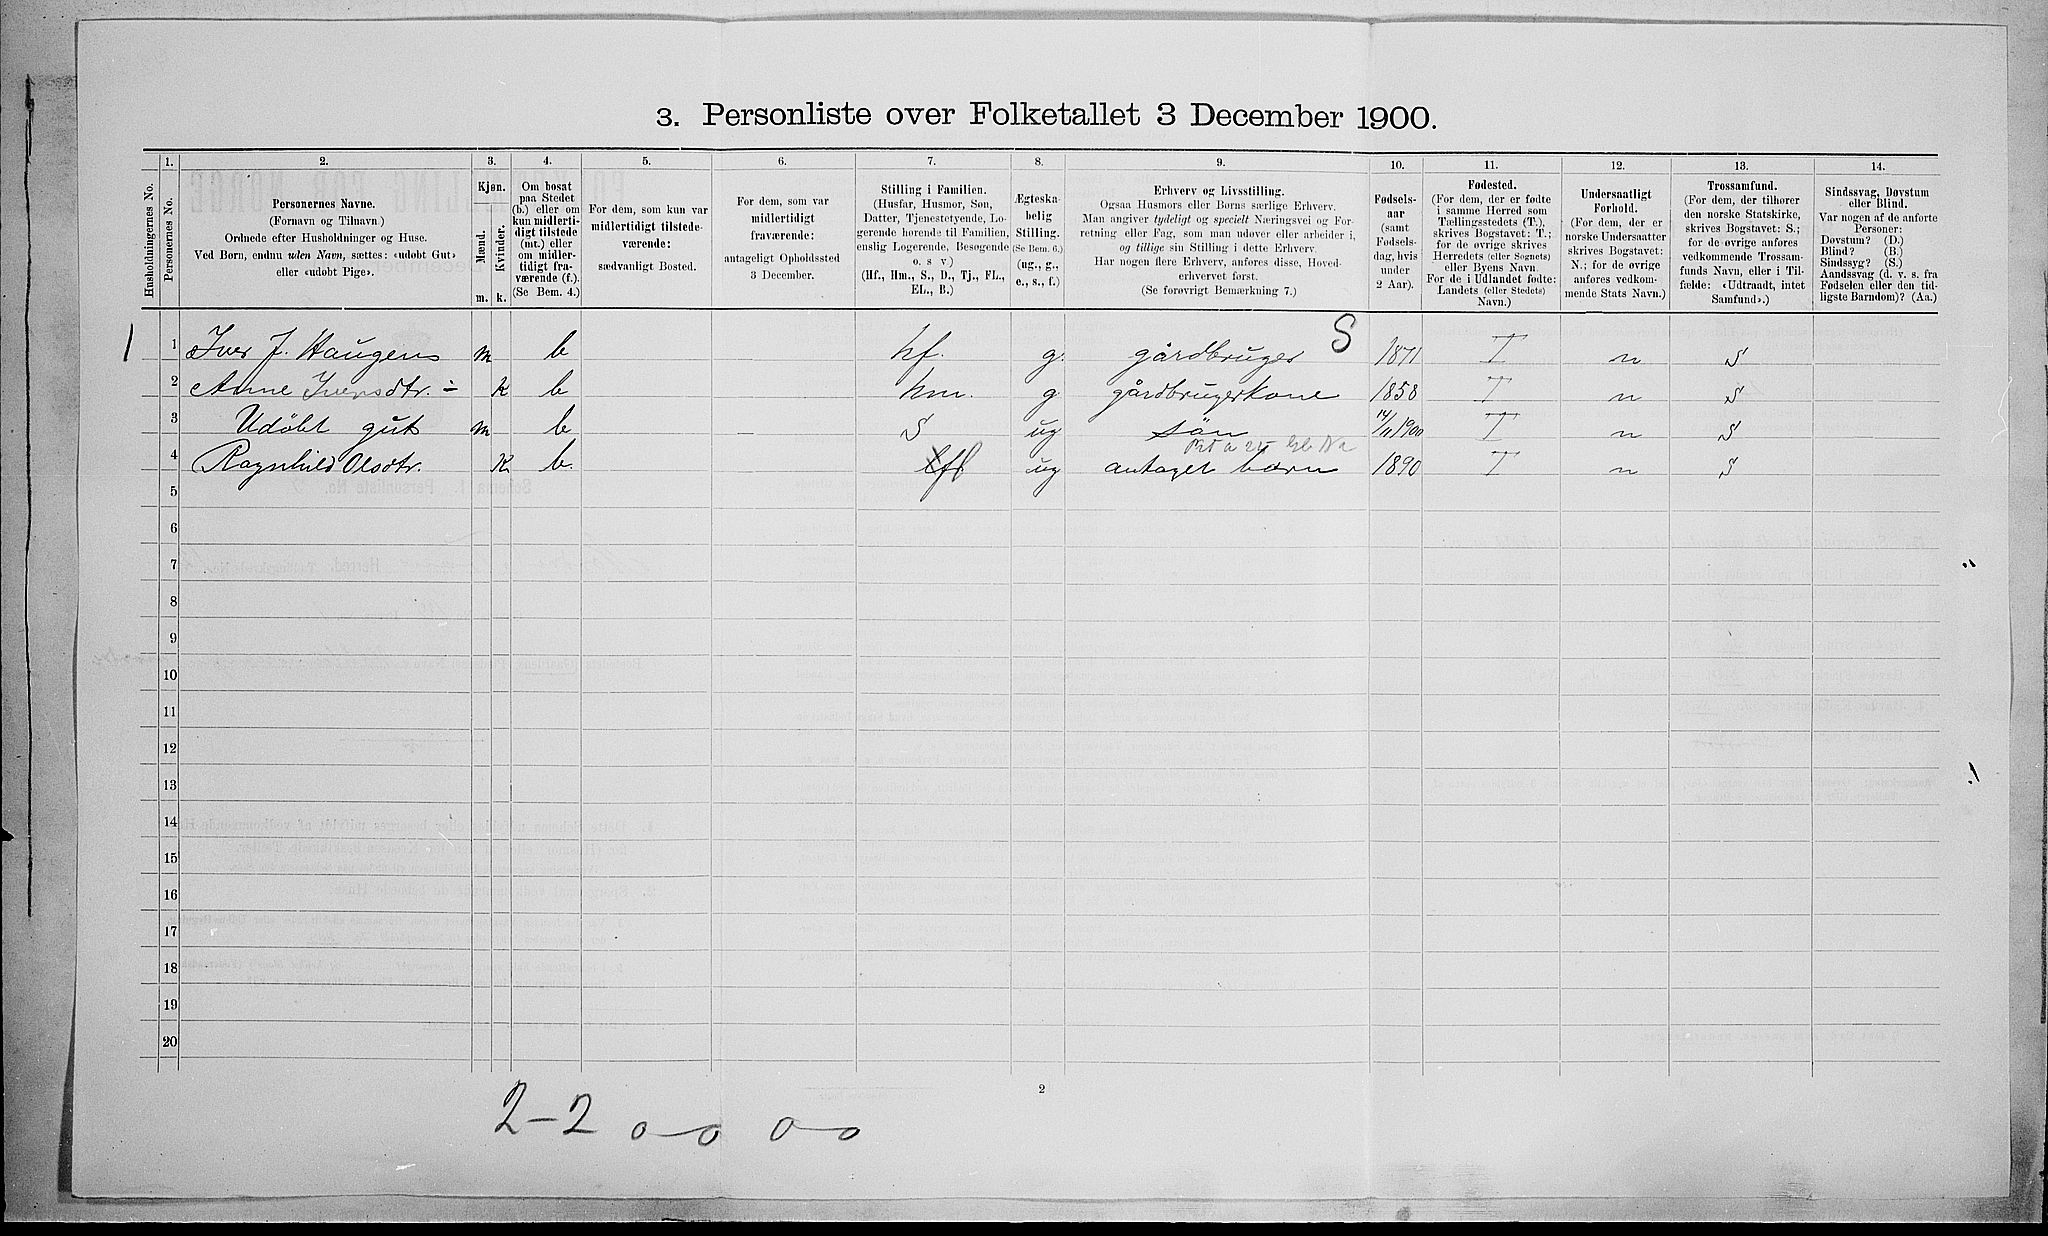 3. Personliste over Folketallet 3 December 1900.
1. 2. 3. 4. 5. 6. 7. 8. 9. 10. 11. 12. 13. 14.
Husholdningernes No.
Personernes No.
Personernes Navne.
(Fornavn og Tilnavn.)
Ordnede efter Husholdninger og Huse.
Ved Børn, endnu uden Navn, sættes: «udøbt Gut»
eller «udøbt Pige».
Kjøn.
Mænd.
Kvinder.
m. k.
Om bosat
paa Stedet
(b.) eller om
kun midlerti-
digt tilstede
(mt.) eller
om midler-
tidigt fra-
værende (f.).
(Se Bem. 4.)
For dem, som kun var
midlertidigt tilstede-
værende:
sædvanligt Bosted.
For dem, som var
midlertidigt
fraværende:
antageligt Opholdssted
3 December.
Stilling i Familien.
(Husfar, Husmor, Søn,
Datter, Tjenestetyende, Lo-
gerende hørende til Familien,
enslig Logerende, Besøgende
o. s v.)
(Hf., Hm., S., D., Tj., FL.,
EL., B.)
Ægteska-
belig
Stilling.
(Se Bem. 6.)
(ug., g.,
e., s., f.)
Erhverv og Livsstilling.
Ogsaa Husmors eller Børns særlige Erhverv.
Man angiver tydeligt og specielt Næringsvei og For-
retning eller Fag, som man udøver eller arbeider i,
og tillige sin Stilling i dette Erhverv.
Har nogen flere Erhverv, anføres disse, Hoved-
erhvervet først.
(Se forøvrigt Bemærkning 7.)
Fødsels-
aar
(samt
Fødsels-
dag, hvis
under
2 Aar).
Fødested.
(For dem, der er fødte
i samme Herred som
Tællingsstedets (T.),
skrives Bogstavet: T.;
for de øvrige skrives
Herredets (eller Sognets)
eller Byens Navn.
For de i Udlandet fødte:
Landets (eller Stedets)
Navn.)
Undersaatligt
Forhold.
(For dem, der er
norske Undersaatter
skrives Bogstavet:
N.; for de øvrige
anføres vedkom-
mende Stats Navn.)
Trossamfund.
(For dem, der tilhører
den norske Statskirke,
skrives Bogstavet: S.;
for de øvrige anføres
vedkommende Trossam-
funds Navn, eller i Til-
fælde: «Udtraadt, intet
Samfund».)
Sindssvag, Døvstum
eller Blind.
Var nogen af de anførte
Personer:
Døvstum? (D.)
Blind? (B.)
Sindssyg? (S.)
Aandssvag (d. v. s. fra
Fødselen eller den tid-
ligste Barndom)? (Aa.)
S
1 1 Iver J. Haugen m b hf. g. gårdbruger 1871 T n S
2 Anne Iversdtr. ÷ k b hm. g gårdbrugerkone 1858 T n S
3 Udøbt gut m b S ug søn 14/11 1900 T n S
4 Ragnhild Olsdtr. k b. fl ug antaget barn 1890 T n S
5
6
7
8
9
10
11
12
13
14
15
16
17
18
19
20
2
2-2 0-0 0-0